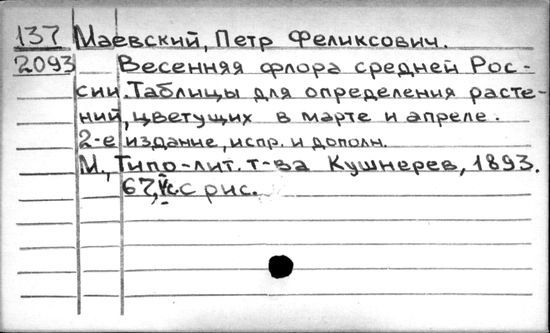 137 Маевский, Петр Феликсович.
2093 Весенняя флора средней Рос-
сии. Таблицы для определения расте-
ний, цветущих в марте и апреле.
2-е издание, испр. и дополн.
М., Типо-лит. т-ва Кушнерев, 1893.
67, с. с рис.